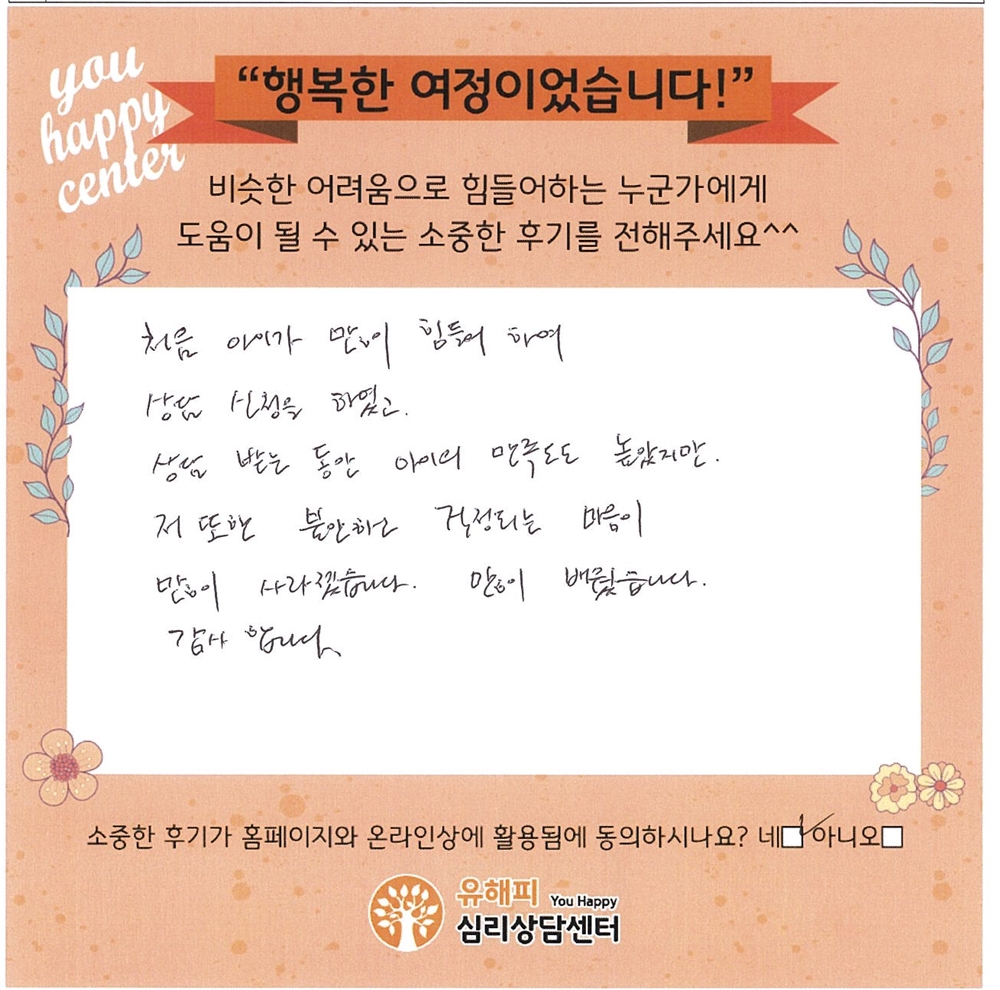 you
happy
center
“행복한 여정이었습니다!”
비슷한 어려움으로 힘들어하는 누군가에게
도움이 될 수 있는 소중한 후기를 전해주세요^^
처음 아이가 많이 힘들어 하여
상담 신청을 하였고.
상담 받는 동안 아이의 만족도도 높았지만.
저 또한 불안하고 걱정되는 마음이
많이 사라졌습니다. 많이 배웠습니다.
감사 합니다.
소중한 후기가 홈페이지와 온라인상에 활용됨에 동의하시나요? 네 아니오
유해피 You Happy
심리상담센터